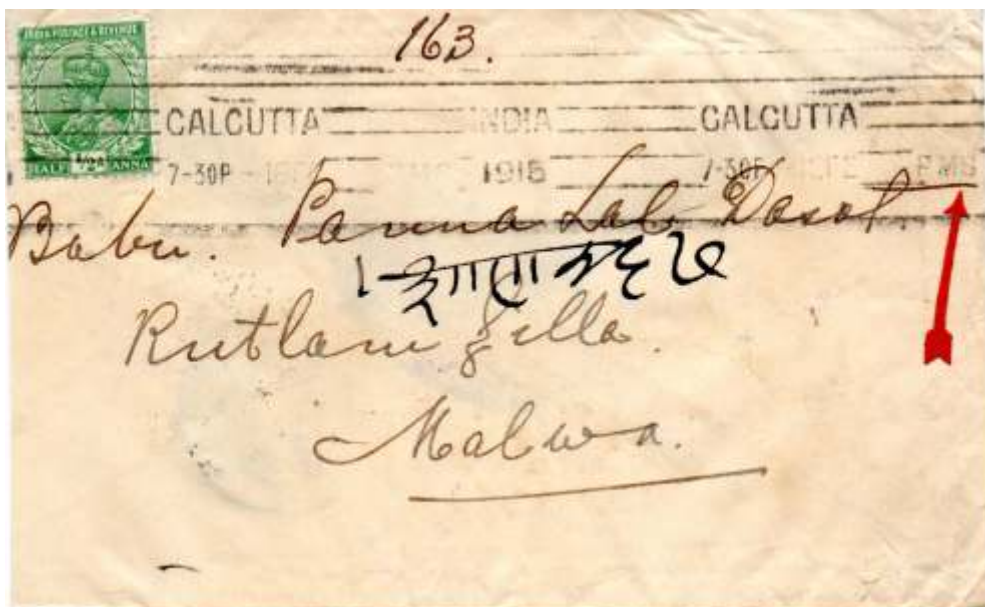 163.
INDIA POSTAGE & REVENUE
HALF 1/2A ANNA
CALCUTTA INDIA CALCUTTA
7-30P 1915 7-30P RMS
Babu. Panna Lal Dasot
Rutlam Zilla.
Malwa.